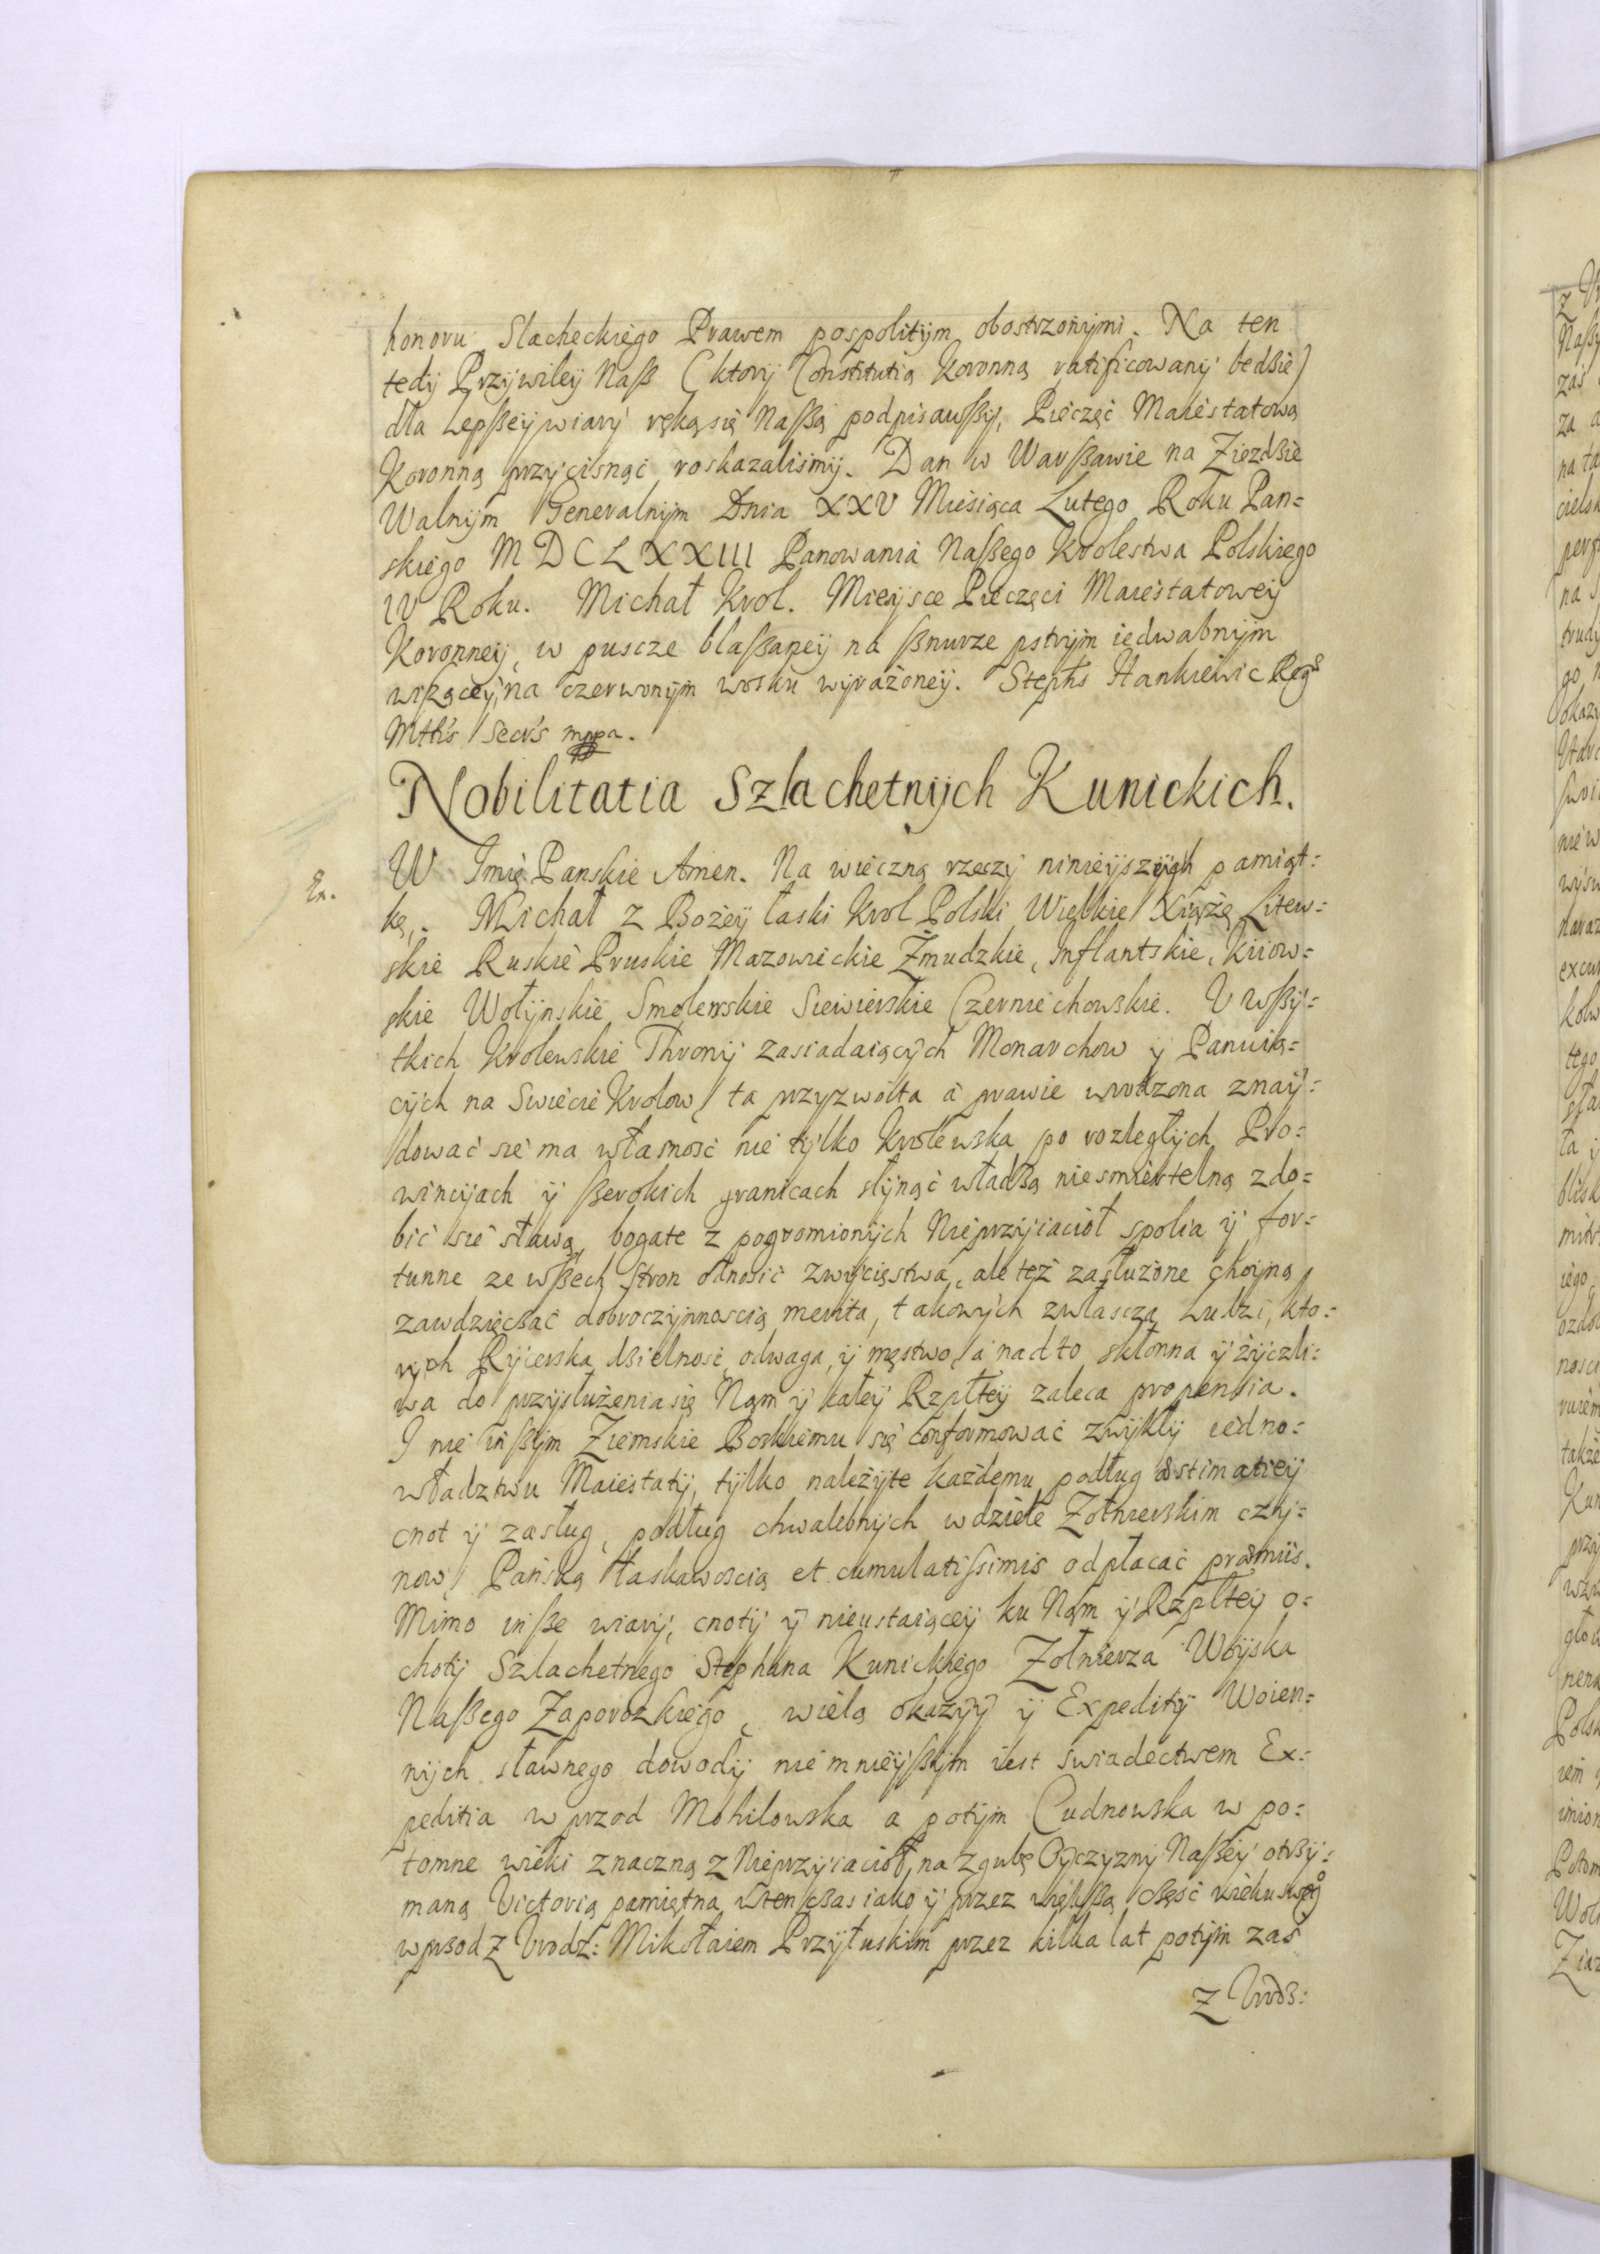 honoru Slacheckiego Prawem pospolitym obostrzonymi. Na ten
tedy Przywiley Naß (ktory Constitutią Koronną ratificowany bedzie)
dla Lepßey wiary ręką się Naßą podpisawßy, Pieczęć Maiestatową
Koronną przycisnąć roskazalismy. Dan w Warßawie na Ziezdzie
Walnym Generalnym Dnia XXV Miesiąca Lutego Roku Pan=
skiego MDCLXXIII Panowania Naßego Krolestwa Polskiego
IV Roku. Michał Krol. Mieysce Pieczęci Maiestatowey
Koronney, w puscze blaßaney na ßnurze pstrym iedwabnym
wiszącey, na czerwonym wosku wyrażoney. Stephs Hankiewic Regs
Mttis Secrs mppa.
Nobilitatia Szlachetnych Kunickich.
W Imię Panskie Amen. Na wieczną rzeczy ninieyszych pamiąt=
kę. Michał z Bożey łaski Krol Polski Wielkie Xiążę Litew=
skie Ruskie Pruskie Mazowieckie Żmudzkie, Inflantskie, Kiiow=
skie Wołynskie Smolenskie Siewierskie Czerniechowskie. U wßy=
tkich Krolewskie Throny zasiadaiących Monarchow y Panuią=
cych na Swiecie Krolow ta przyzwoita a prawie wrodzona znay=
dować sie ma własność nie tylko Krolewska po rozległych Pro=
wincyach y ßerokich granicach słynąć władzą niesmiertelną zdo=
bić sie sławą, bogate z pogromionych Nieprzyiacioł spolia y for=
tunne ze wßech stron odnosić zwycięstwa, ale też zasłużone hoyną
zawdzięczać dobroczynnoscią merita, takowych zwłascza Ludzi, kto=
rych Rycerska dzielność, odwaga, y męstwo, a nadto skłonna y życzli=
wa do przysłużenia się Nam y całey Rzpltey zaleca propensia.
I nie inßym Ziemskie Boskiemu się conformować zwykły iedno=
władztwu Maiestaty, tylko należyte każdemu podług æstimatiey
cnot y zasług, podług chwalebnych w dziele Żołnierskim czy=
now Pańską łaskawoscią et cumulatissimis odpłacać præmiis.
Mimo inße wiary, cnoty y nieustaiącey ku Nam y Rzpltey o=
choty Szlachetnego Stephana Kunickiego Żołnierza Woyska
Naßego Zaporozkiego, wielą okaziy y Expedity Woien=
nych sławnego dowody nie mnieyßym iest swiadectwem Ex=
peditia wprzod Mohilowska a potym Cudnowska w po=
tomne wieki znaczną z Nieprzyiacioł, na zgubę Oyczyzny Naßey otrzy=
maną Victorią pamiętna, w ten czas iako y przez więkßą część wieku swego
wprzod z Urodz: Mikołaiem Przyłuskim przez kilka lat potym zas
z Urodz: